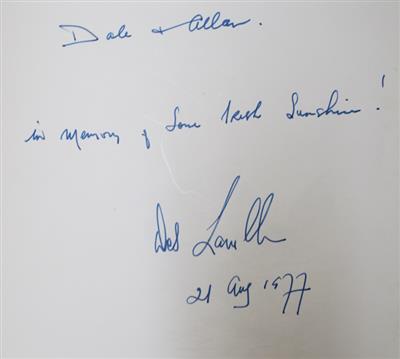 Dale & Allan.
in memory of Some Irish Sunshine!
Des Lavelle
21 Aug 1977